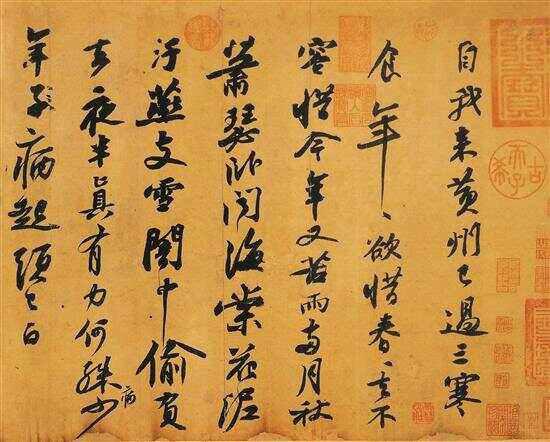 自我来黄州已過三寒
食年〻欲惜春〻去不
容惜今年又苦雨兩月秋
蕭瑟卧聞海棠花泥
汙燕支雪闇中偷負
去夜半真有力何殊少病
年子病起頭已白
古希天子